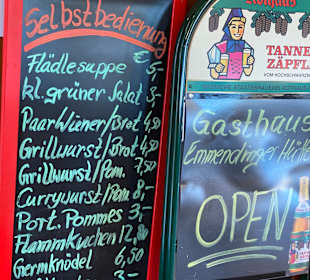 Selbstbedienung
€
Flädlesuppe 5,-
kl. grüner Salat 3,-
Paar Wiener/Brot 4,50
Grillwurst/Brot 4,-
Grillwurst/Pom. 7,50
Currywurst/Pom. 8,-
Port. Pommes 3,-
Flammkuchen 12,80
Germknödel 6,50
Rothaus
TANNEN
ZÄPFLE
VOM HOCHSCHWARZWALD
Gasthaus
Emmendinger Hütte
OPEN